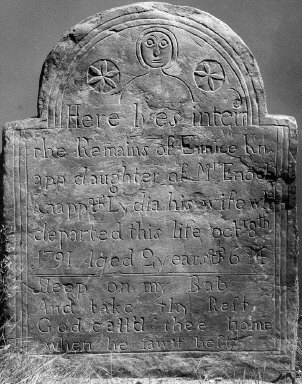 Here lyes inter'd
the Remains of Eunice Kn
app daughter of Mr Enoch
Knapp & Lydia his wife
departed this life oct
1791 Aged 2 years
Sleep on my Bab
And take thy Rest
God call'd thee home
when he saw it best